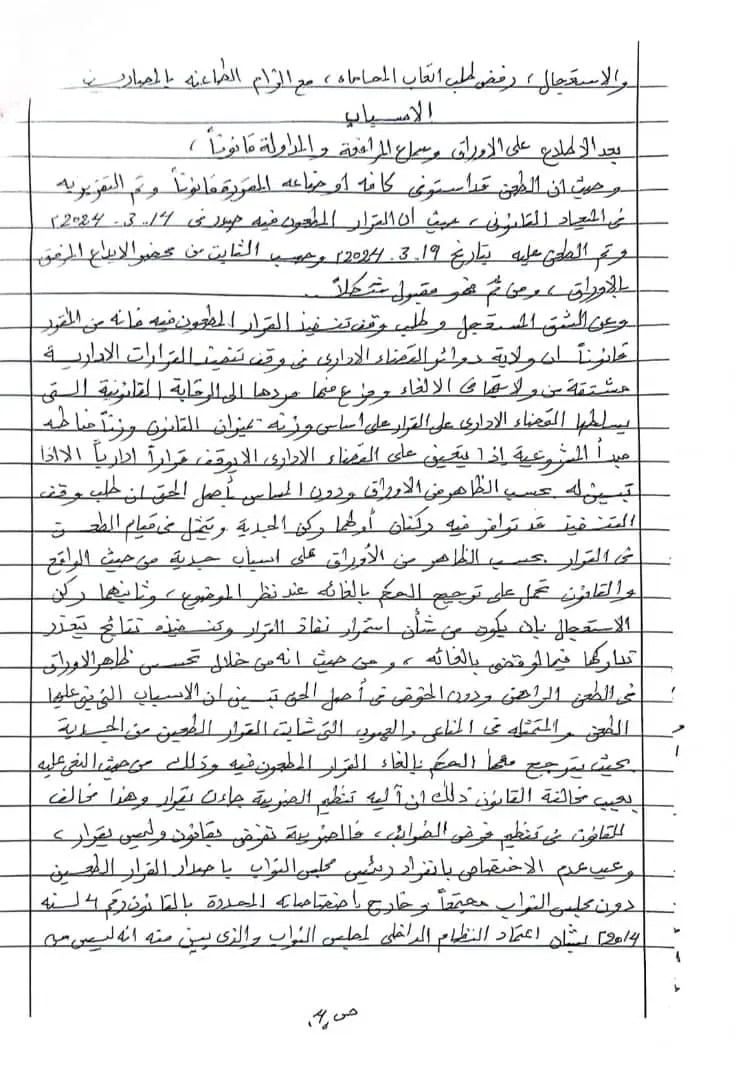 والاستعجال، رفض طلب اتعاب المحاماه، مع الزام الطاعنه بالمصاريف
الاسباب
بعد الاطلاع على الاوراق وسماع المرافعة والمداولة قانوناً،
وحيث ان الطعن قد استوفى كافه اوضاعه المقررة قانوناً وتم التقرير به
فى الميعاد القانونى، حيث أن القرار المطعون فيه صدر فى 14.3.2024
وتم الطعن عليه بتاريخ 19.3.2024 وحسب الثابت من محضر الايداع المرفق
بالاوراق، ومن ثم فهو مقبول شكلاً.
وعن الشق المستعجل وطلب وقف تنفيذ القرار المطعون فيه فانه من المقرر
قانوناً ان ولاية دوائر القضاء الادارى فى وقف تنفيذ القرارات الادارية
مشتقة من ولايتها فى الالغاء وفرع منها مردها الى الرقابة القانونية التى
يسلطها القضاء الادارى على القرار على اساس وزنه بميزان القانون وزناً مناطه
مبدأ المشروعية إذا يتعين على القضاء الادارى الا يوقف قراراً ادارياً الا اذا
تبين له بحسب الظاهر من الاوراق ودون المساس بأصل الحق ان طلب وقف
التنفيذ قد توافر فيه ركنان أولهما ركن الجدية ويتمثل فى قيام الطعن
فى القرار بحسب الظاهر من الأوراق على اسباب جدية من حيث الواقع
والقانون تحمل على ترجيح الحكم بالغائه عند نظر الموضوع، وثانيهما ركن
الاستعجال بان يكون من شأن استمرار نفاذ القرار وتنفيذه نتائج يتعذر
تداركها فيما لو قضى بالغائه، ومن حيث انه من خلال تحسس ظاهر الاوراق
فى الطعن الراهن ودون الخوض فى أصل الحق تبين ان الاسباب التى بنى عليها
الطعن والمتمثله فى المناعى والعيوب التى شابت القرار الطعين من الجدية
بحيث يترجح معها الحكم بالغاء القرار المطعون فيه وذلك من حيث النعى عليه
بعيب مخالفة القانون ذلك ان آلية تنظيم الضريبة جاءت بقرار وهذا مخالف
للقانون فى تنظيم فرض الضرائب، فالضريبة تفرض بقانون وليس بقرار،
وعيب عدم الاختصاص بانفراد رئيس مجلس النواب باصدار القرار الطعين
دون مجلس النواب مجتمعاً وخارج باختصاصاته المحددة بالقانون رقم 4 لسنه
2014 بشأن اعتماد النظام الداخلى لمجلس النواب والذى يبين منه انه ليس من
ص 4